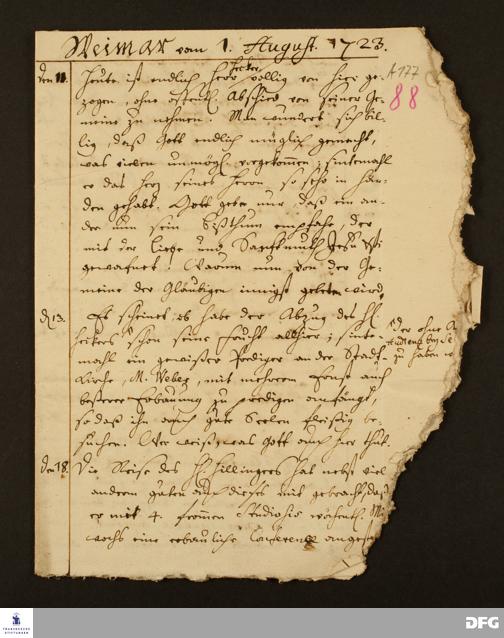 Weimar vom 1. August. 1723.
A 177
88
Den 11. Heute ist endlich Herr Hecker völlig von hier ge-
zogen, ohne öffentl. Abschied von seiner Ge-
meine zu nehmen. Man wundert sich bil-
lig, daß Gott endlich müglich gemacht,
was vielen unmögl. vorgekommen; sintemahl
er das Herz seines Herrn so sehr in Hän-
den gehabt. Gott gebe nur, daß ein an-
der nun sein Bißthum empfahe, der
mit der Liebe und Sanftmuth Jesu
gewafnet. Warum nun von der Ge-
meine der Gläubigen innigst gebeten wird.
d. 13. Es scheinet, es habe der Abzug des H.
Heckers schon seine Frucht allhier; sinte-
mahl ein gewisser Prediger an der Stadt-
Kirche, M. Weber, mit mehrerem Ernst auch
beßerer Erbauung zu predigen anfängt,
so daß ihn auch gute Seelen fleißig be-
suchen. Wer weiß, was Gott auch hier thut.
der ohne
zu haben
Den 18. Die Reise des H. Hillingers hat nebst viel
anderm guten auch dieses mit gebracht, daß
er mit 4. frommen Studiosis wöchentl.
wochs eine erbauliche Conferenz
FRANCKESCHE STIFTUNGEN
DFG